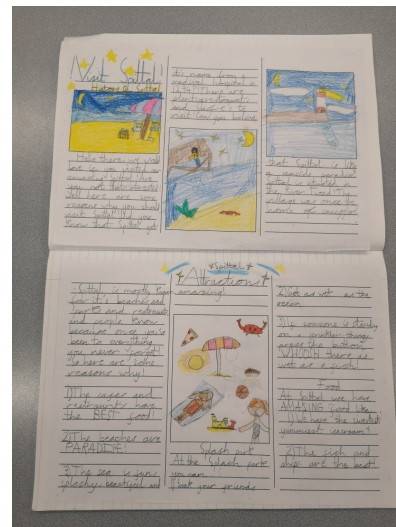 Visit Spittal!
History of Spittal
Hello there, we would
love if you visited our
amazing Spittal. Are
you not that interested
well here are some
reasons why you should
visit Spittal! Did you
know that Spittal got
it's name from a
medival hospital in
1234? There are
plenty restraunts
and places to
visit. Can you believe
that Spittal is like
a seaside paradise
Spittal is situated in
the River Tweed. This
village was once the
*Spittal*
Attractions!
Spittal is mostly known
for it's beaches and
parks and restraunts
and people know
because once you've
been to everything
you never forget!
So here are some
reasons why!
1) The cafes and
restraunts have
the BEST food!
2) The beaches are
PARADISE!
3) The sea is fun,
splashy, beautiful and
amazing!
Splash park
At the Splash park
you can
1) Soak your friends
2) Get as wet as the
ocean
3) If someone is standing
on a sprinkler thingy
press the button
WHOOSH there as
wet as a fish!
Food
At Spittal we have
AMAZING food like
1) We have the
yummiest icecream!
2) The fish and
chips are the best!